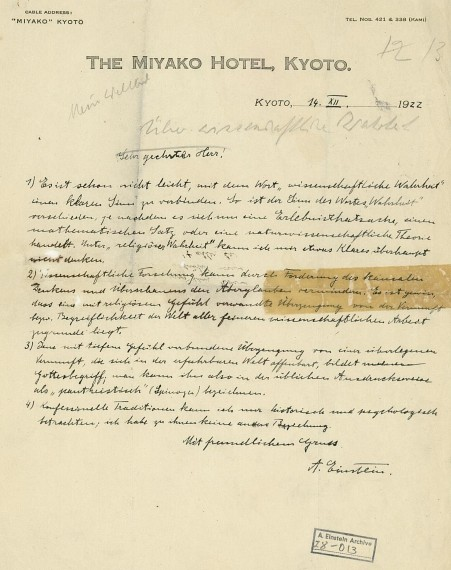 CABLE ADDRESS:
"MIYAKO" KYOTO
TEL. NOS. 421 & 338 (KAMI)
12 13
THE MIYAKO HOTEL, KYOTO.
KYOTO, 14. XII. 1922
Über wissenschaftliche
Sehr geehrter Herr!
1) Es ist schon nicht leicht, mit dem Wort „wissenschaftliche Wahrheit"
einen klaren Sinn zu verbinden. So ist der Sinn des Wortes „Wahrheit"
verschieden, je nachdem es sich um eine Erlebnisthatsache, einen
mathematischen Satz oder eine naturwissenschaftliche Theorie
handelt. Unter „religiöser Wahrheit" kann ich mir etwas Klares überhaupt
nicht denken.
2) Wissenschaftliche Forschung kann durch Förderung des kausalen
Denkens und Überschauens den Aberglauben vermindern. Es ist gewiss,
dass eine mit religiösem Gefühl verwandte Überzeugung von der Vernunft
bzw. Begreiflichkeit der Welt aller feineren wissenschaftlichen Arbeit
zugrunde liegt.
3) Jene mit tiefem Gefühl verbundene Überzeugung von einer überlegenen
Vernunft, die sich in der erfahrbaren Welt offenbart, bildet meinen
Gottesbegriff; man kann ihn also in der üblichen Ausdrucksweise
als „pantheistisch" (Spinoza) bezeichnen.
4) Konfessionelle Traditionen kann ich nur historisch und psychologisch
betrachten; ich habe zu ihnen keine andere Beziehung.
Mit freundlichem Gruss
A. Einstein.
A. Einstein Archive
28-013